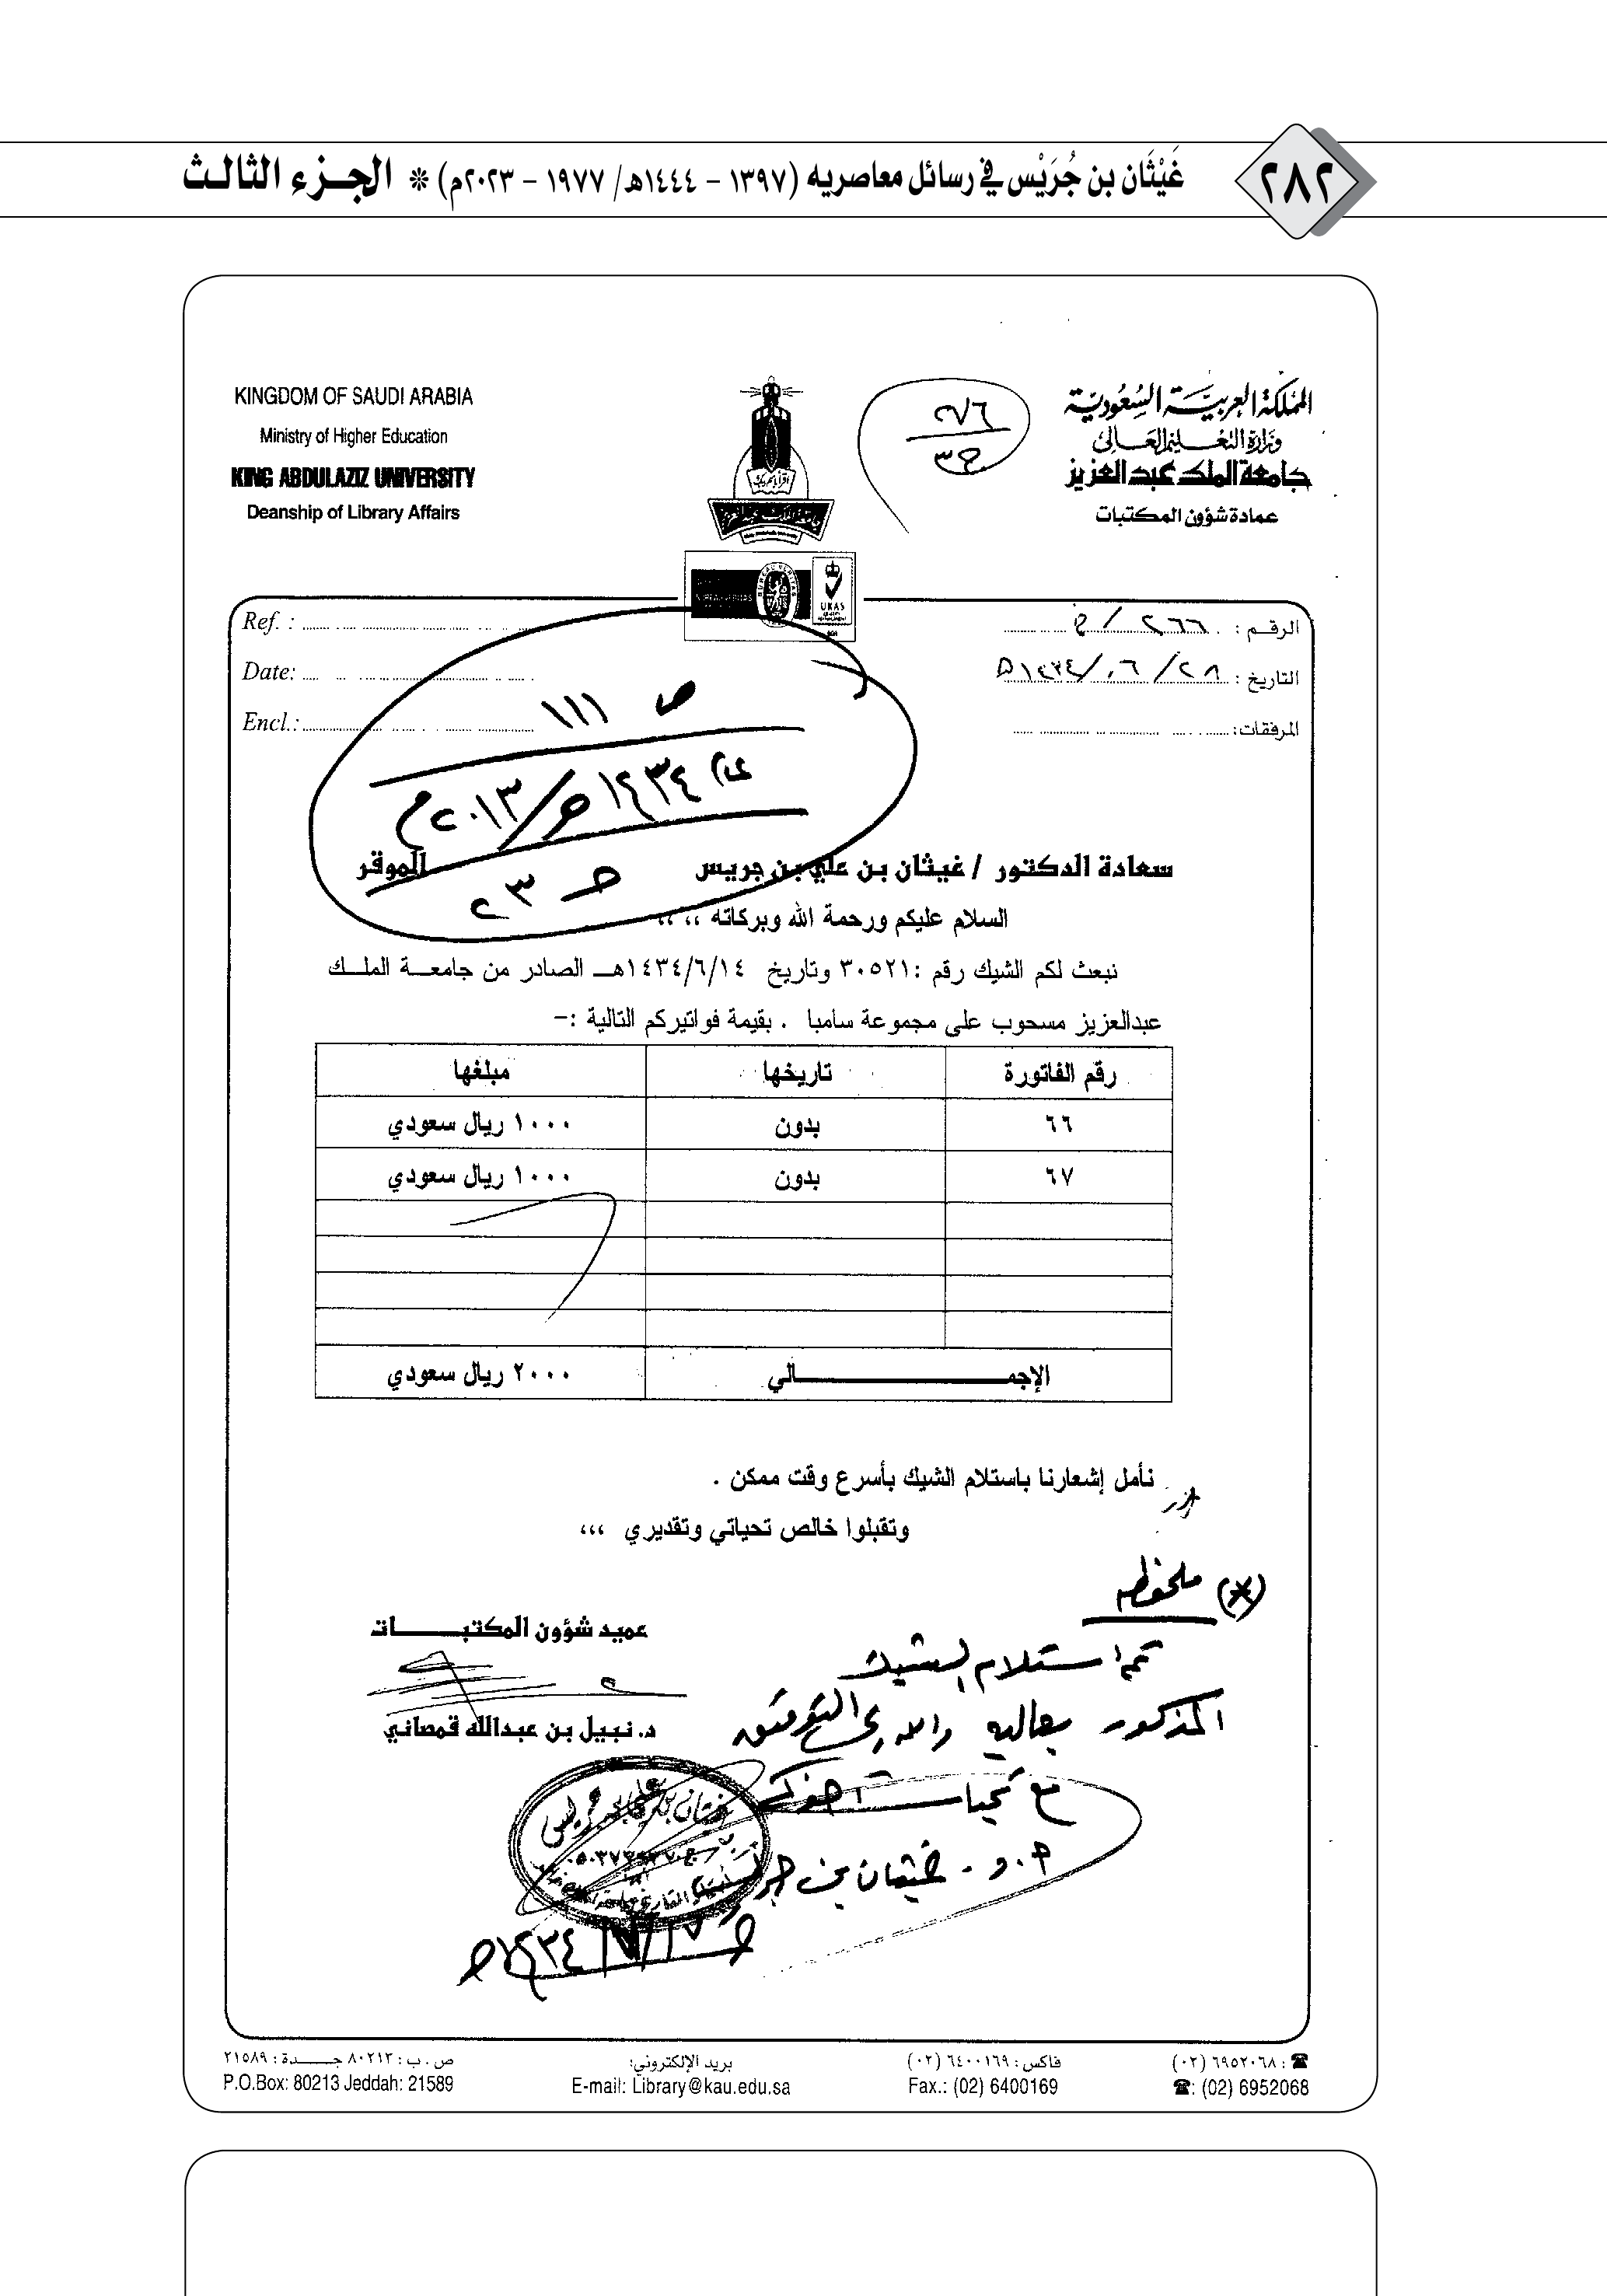 ٢٨٢
غَيْثَان بن جُرَيْس في رسائل معاصريه (١٣٩٧ - ١٤٤٤هـ/ ١٩٧٧ - ٢٠٢٣م) * الجزء الثالث
المملكة العربية السعودية
وزارة التعليم العالي
جامعة الملك عبدالعزيز
عمادة شؤون المكتبات
٢٧٦
KINGDOM OF SAUDI ARABIA
Ministry of Higher Education
KING ABDULAZIZ UNIVERSITY
Deanship of Library Affairs
BUREAU VERITAS
UKAS
الرقم : ٢٦٦ /
التاريخ : ٢٨ / ٠٦ / ١٤٣٤هـ
المرفقات:
Ref. :
Date:
Encl.:
ص ١١١
عام ١٤٣٤هـ/٢٠١٣م
سعادة الدكتور / غيثان بن علي بن جريس الموقر
السلام عليكم ورحمة الله وبركاته ،، ،،
نبعث لكم الشيك رقم : ٣٠٥٢١ وتاريخ ١٤٣٤/٦/١٤هــ الصادر من جامعــة الملــك
عبدالعزيز مسحوب على مجموعة سامبا . بقيمة فواتيركم التالية :-
رقم الفاتورة تاريخها مبلغها
٦٦ بدون ١٠٠٠ ريال سعودي
٦٧ بدون ١٠٠٠ ريال سعودي
الإجمـــــالي ٢٠٠٠ ريال سعودي
نأمل إشعارنا باستلام الشيك بأسرع وقت ممكن .
وتقبلوا خالص تحياتي وتقديري ،،،
عميد شؤون المكتبـــــات
د. نبيل بن عبدالله قمصاني
(*) ملحوظه
تم استلام الشيك
المذكور بعاليه والله ولي التوفيق
مع تحيات أخوكم
أ.د - غيثان بن جريس
١٤٣٤/٧/١٧هـ
☎ : ٦٩٥٢٠٦٨ (٠٢)
☎: (02) 6952068
فاكس : ٦٤٠٠١٦٩ (٠٢)
Fax.: (02) 6400169
بريد الإلكتروني:
E-mail: Library@kau.edu.sa
ص . ب : ٨٠٢١٣ جـــدة : ٢١٥٨٩
P.O.Box: 80213 Jeddah: 21589